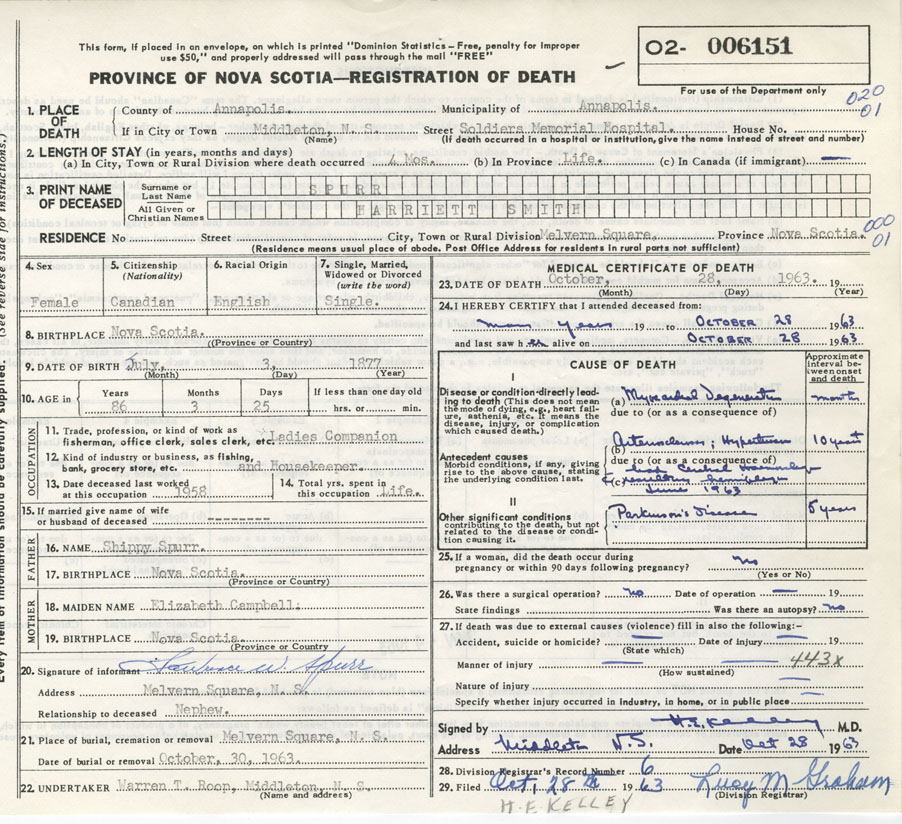 This form, if placed in an envelope, on which is printed "Dominion Statistics – Free, penalty for improper
use $50," and properly addressed will pass through the mail "FREE"
O2- 006151
PROVINCE OF NOVA SCOTIA—REGISTRATION OF DEATH
For use of the Department only
020
01
1. PLACE OF DEATH
County of Annapolis. Municipality of Annapolis.
If in City or Town Middleton, N. S. Street Soldiers Memorial Hospital. House No.
(Name) (If death occurred in a hospital or institution, give the name instead of street and number)
2. LENGTH OF STAY (in years, months and days)
(a) In City, Town or Rural Division where death occurred 4 Mos. (b) In Province Life. (c) In Canada (if immigrant)
3. PRINT NAME OF DECEASED
Surname or Last Name SPURR
All Given or Christian Names HARRIETT SMITH
000
01
RESIDENCE No Street City, Town or Rural Division Melvern Square. Province Nova Scotia.
(Residence means usual place of abode. Post Office Address for residents in rural parts not sufficient)
4. Sex
Female
5. Citizenship
(Nationality)
Canadian
6. Racial Origin
English
7. Single, Married,
Widowed or Divorced
(write the word)
Single.
8. BIRTHPLACE Nova Scotia.
(Province or Country)
9. DATE OF BIRTH July, 3, 1877
(Month) (Day) (Year)
10. AGE in
Years Months Days If less than one day old
86 3 25 hrs. or min.
OCCUPATION
11. Trade, profession, or kind of work as
fisherman, office clerk, sales clerk, etc. Ladies Companion
12. Kind of industry or business, as fishing,
bank, grocery store, etc. and Housekeeper.
13. Date deceased last worked
at this occupation 1958
14. Total yrs. spent in
this occupation Life.
15. If married give name of wife
or husband of deceased --------
FATHER
16. NAME Shippy Spurr.
17. BIRTHPLACE Nova Scotia.
(Province or Country)
MOTHER
18. MAIDEN NAME Elizabeth Campbell.
19. BIRTHPLACE Nova Scotia.
(Province or Country
20. Signature of informant Lawrence W. Spurr
Address Melvern Square, N. S.
Relationship to deceased Nephew.
21. Place of burial, cremation or removal Melvern Square, N. S.
Date of burial or removal October, 30, 1963.
22. UNDERTAKER Warren T. Roop, Middleton, N. S.
(Name and address)
MEDICAL CERTIFICATE OF DEATH
23. DATE OF DEATH October, 28, 1963. 19
(Month) (Day) (Year)
24. I HEREBY CERTIFY that I attended deceased from:
many years 19 to OCTOBER 28 1963
and last saw her alive on OCTOBER 28 1963
CAUSE OF DEATH
Approximate
interval between
onset
and death
I
Disease or condition directly leading
to death (This does not mean
the mode of dying, e.g., heart failure,
asthenia, etc. It means the
disease, injury, or complication
which caused death.)
(a) Myocardial Degeneration months
due to (or as a consequence of
Antecedent causes
Morbid conditions, if any, giving
rise to the above cause, stating
the underlying condition last.
(b) Hypertension 10 years
due to (or as a consequence of
(c) Cerebral Haemorrhage
June 1963
II
Other significant conditions
contributing to the death, but not
related to the disease or condition
causing it.
Parkinson's Disease 5 years
25. If a woman, did the death occur during
pregnancy or within 90 days following pregnancy? no
(Yes or No)
26. Was there a surgical operation? no Date of operation 19
State findings Was there an autopsy? no
27. If death was due to external causes (violence) fill in also the following:–
Accident, suicide or homicide? Date of injury 19
(State which)
Manner of injury 443X
(How sustained)
Nature of injury
Specify whether injury occurred in Industry, in home, or in public place
Signed by H.E. Kelley M.D.
Address Middleton N.S. Date Oct 28 1963
28. Division Registrar's Record Number 6
29. Filed Oct, 28th 1963 Lucy M Graham
(Division Registrar)
H.E. KELLEY
(See reverse side for instructions.)